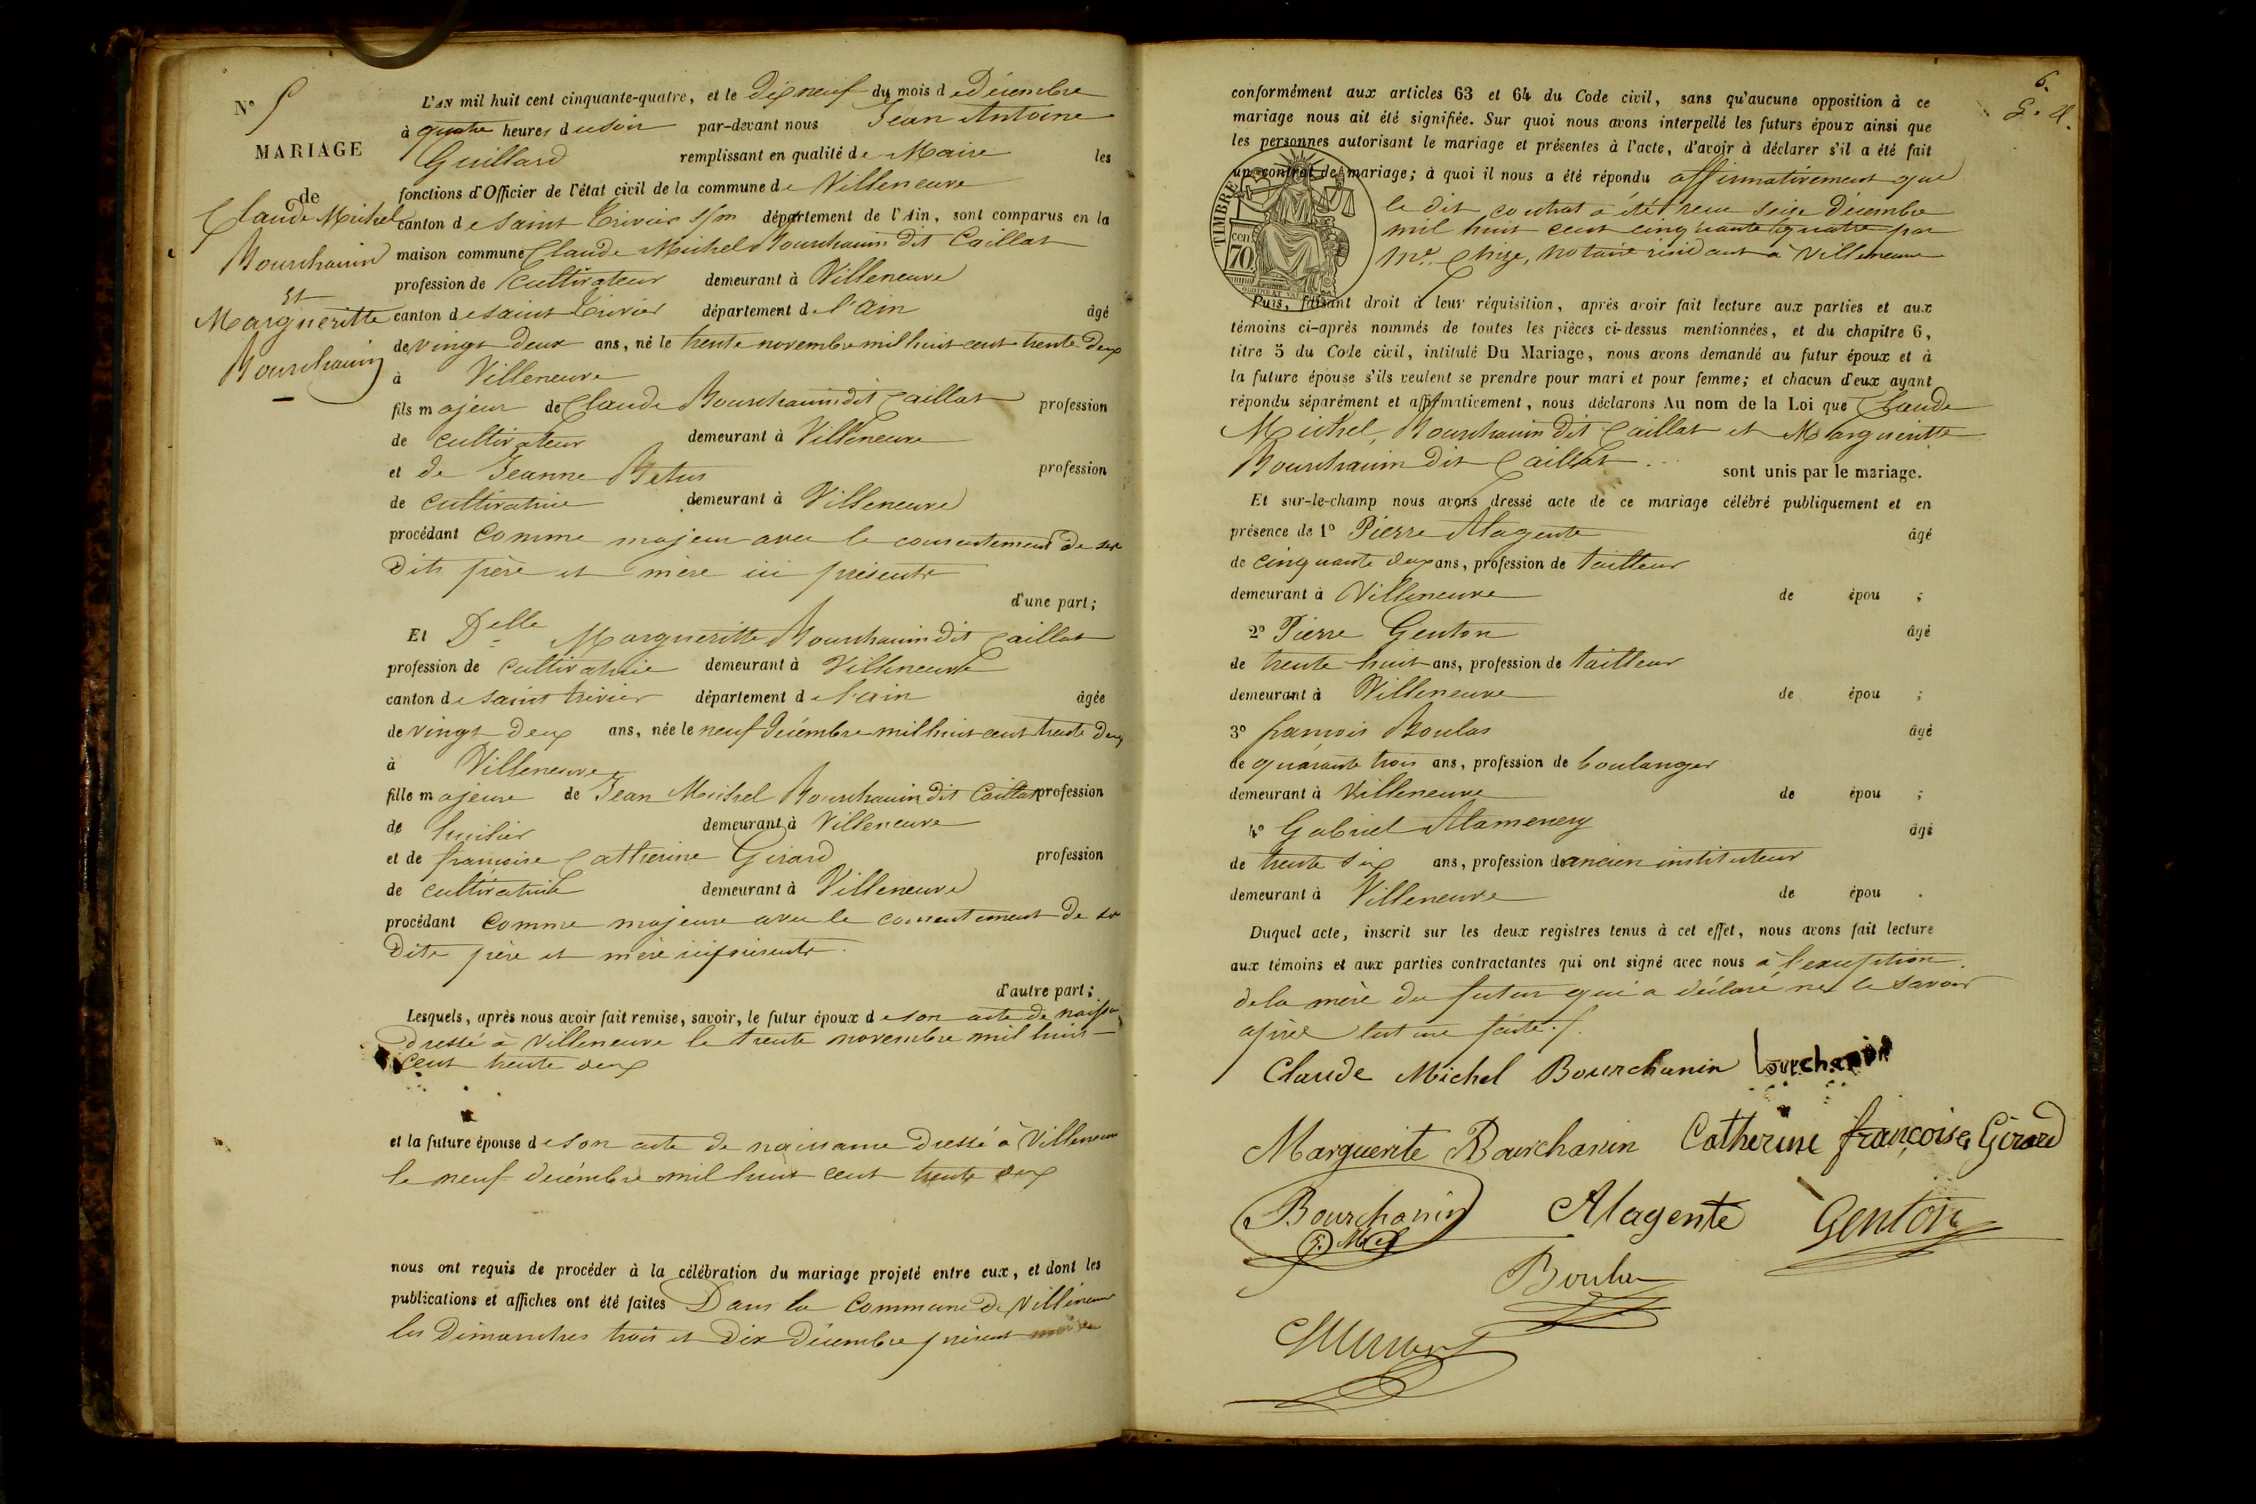 N° 5
MARIAGE
de
Claude Michel
Bourchanin
et
Margueritte
Bourchanin
L'AN mil huit cent cinquante-quatre, et le dix neuf du mois de Décembre
à quatre heures du soir par-devant nous Jean Antoine
Guillard remplissant en qualité de Maire les
fonctions d'Officier de l'état civil de la commune de Villeneuve
canton de saint Trivier s/on département de l'Ain, sont comparus en la
maison commune Claude Michel Bourchanin dit Caillat
profession de cultivateur demeurant à Villeneuve
canton de saint Trivier département de l'ain âgé
de vingt deux ans, né le trente novembre mil huit cent trente deux
à Villeneuve
fils majeur de Claude Bourchanin dit Caillat profession
de cultivateur demeurant à Villeneuve
et de Jeanne Betus profession
de cultivatrice demeurant à Villeneuve
procédant comme majeur avec le consentement de ses
dits père et mère ici présents
d'une part;
Et Delle Margueritte Bourchanin dit Caillat
profession de cultivatrice demeurant à Villeneuve
canton de saint trivier département de l'ain âgée
de vingt deux ans, née le neuf décembre mil huit cent trente deux
à Villeneuve
fille majeure de Jean Michel Bourchanin dit Caillat profession
de huilier demeurant à Villeneuve
et de françoise Catherine Girard profession
de cultivatrice demeurant à Villeneuve
procédant comme majeure avec le consentement de ses
dits père et mère ici présents.
d'autre part;
Lesquels, après nous avoir fait remise, savoir, le futur époux de son acte de naissa
dressé à Villeneuve le trente novembre mil huit
cent trente deux
et la future épouse de son acte de naissance dressé à Villeneuve
le neuf décembre mil huit cent trente deux
nous ont requis de procéder à la célébration du mariage projeté entre eux, et dont les
publications et affiches ont été faites Dans la commune de Villeneuve
les Dimanches trois et dix décembre présent mois
6.
conformément aux articles 63 et 64 du Code civil, sans qu'aucune opposition à ce
mariage nous ait été signifiée. Sur quoi nous avons interpellé les futurs époux ainsi que
les personnes autorisant le mariage et présentes à l'acte, d'avoir à déclarer s'il a été fait
un contrat de mariage; à quoi il nous a été répondu affirmativement que
le dit contrat a été reçu seize décembre
mil huit cent cinquante quatre par
Me. Chize, notaire résidant à Villeneuve
TIMBRE
70 cen
Puis, faisant droit à leur réquisition, après avoir fait lecture aux parties et aux
témoins ci-après nommés de toutes les pièces ci-dessus mentionnées, et du chapitre 6,
titre 5 du Code civil, intitulé Du Mariage, nous avons demandé au futur époux et à
la future épouse s'ils veulent se prendre pour mari et pour femme; et chacun d'eux ayant
répondu séparément et affirmativement, nous déclarons Au nom de la Loi que Claude
Michel, Bourchanin dit Caillat et Margueritte
Bourchanin dit Caillat sont unis par le mariage.
Et sur-le-champ nous avons dressé acte de ce mariage célébré publiquement et en
présence de 1° Pierre Alagente âgé
de cinquante deux ans, profession de tailleur
demeurant à Villeneuve de épou ;
2° Pierre Genton âgé
de trente huit ans, profession de tailleur
demeurant à Villeneuve de épou ;
3° françois Boulas âgé
de quarante trois ans, profession de boulanger
demeurant à Villeneuve de épou ;
4° Gabriel Alamenery âgé
de trente six ans, profession de ancien instituteur
demeurant à Villeneuve de épou .
Duquel acte, inscrit sur les deux registres tenus à cet effet, nous avons fait lecture
aux témoins et aux parties contractantes qui ont signé avec nous à l'exception
de la mère du futur qui a déclaré ne le savoir
après lecture faite./.
Claude Michel Bourchanin bourchanin
Marguerite Bourchanin Catherine françoise Girard
Bourchanin Alagente Genton
J. M.